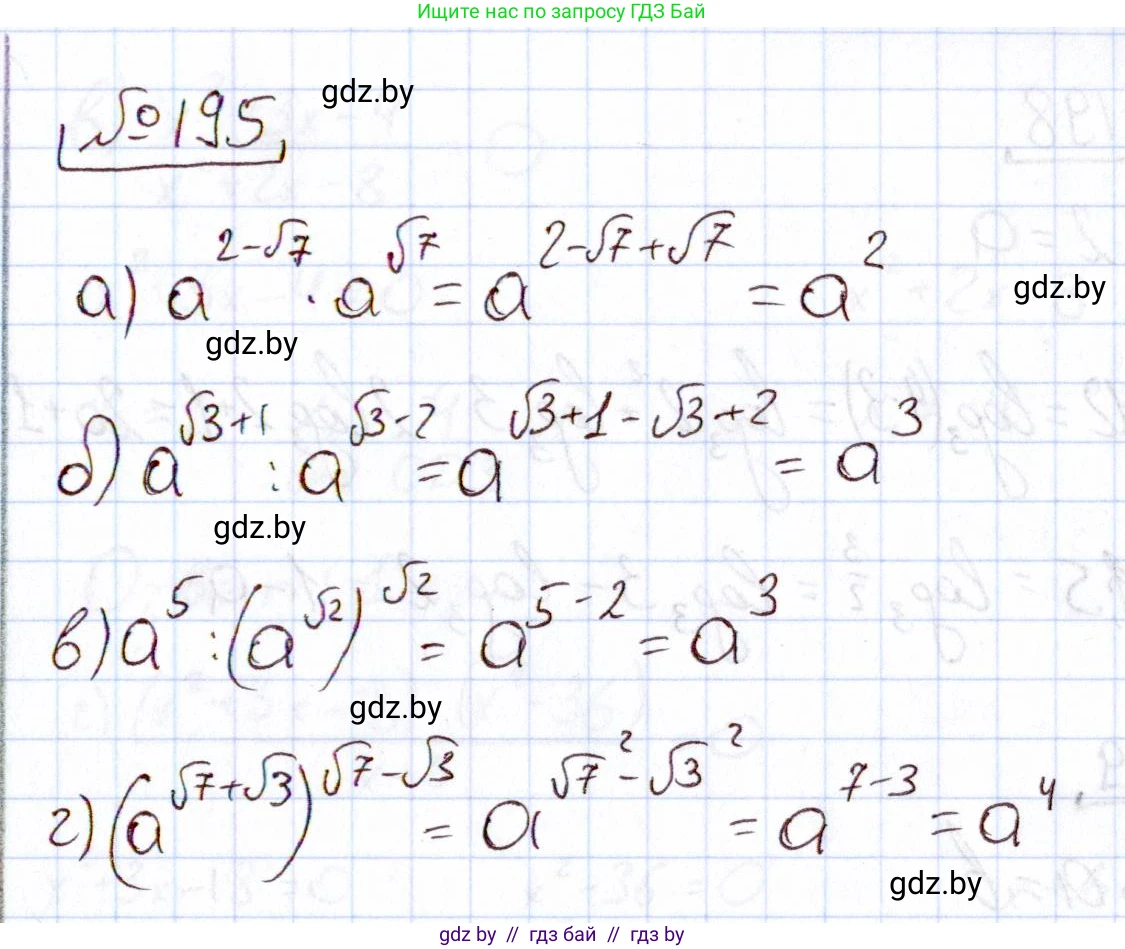 Ищите нас по запросу ГДЗ Бай
№195
gdz.by
а) a^{2-√7} · a^{√7} = a^{2-√7+√7} = a^2
gdz.by
gdz.by
б) a^{√3+1} : a^{√3-2} = a^{√3+1-√3+2} = a^3
gdz.by
в) a^5 : (a^{√2})^{√2} = a^{5-2} = a^3
gdz.by
г) (a^{√7+√3})^{√7-√3} = a^{√7^2-√3^2} = a^{7-3} = a^4
gdz.by
gdz by // гдз бай // гдз by